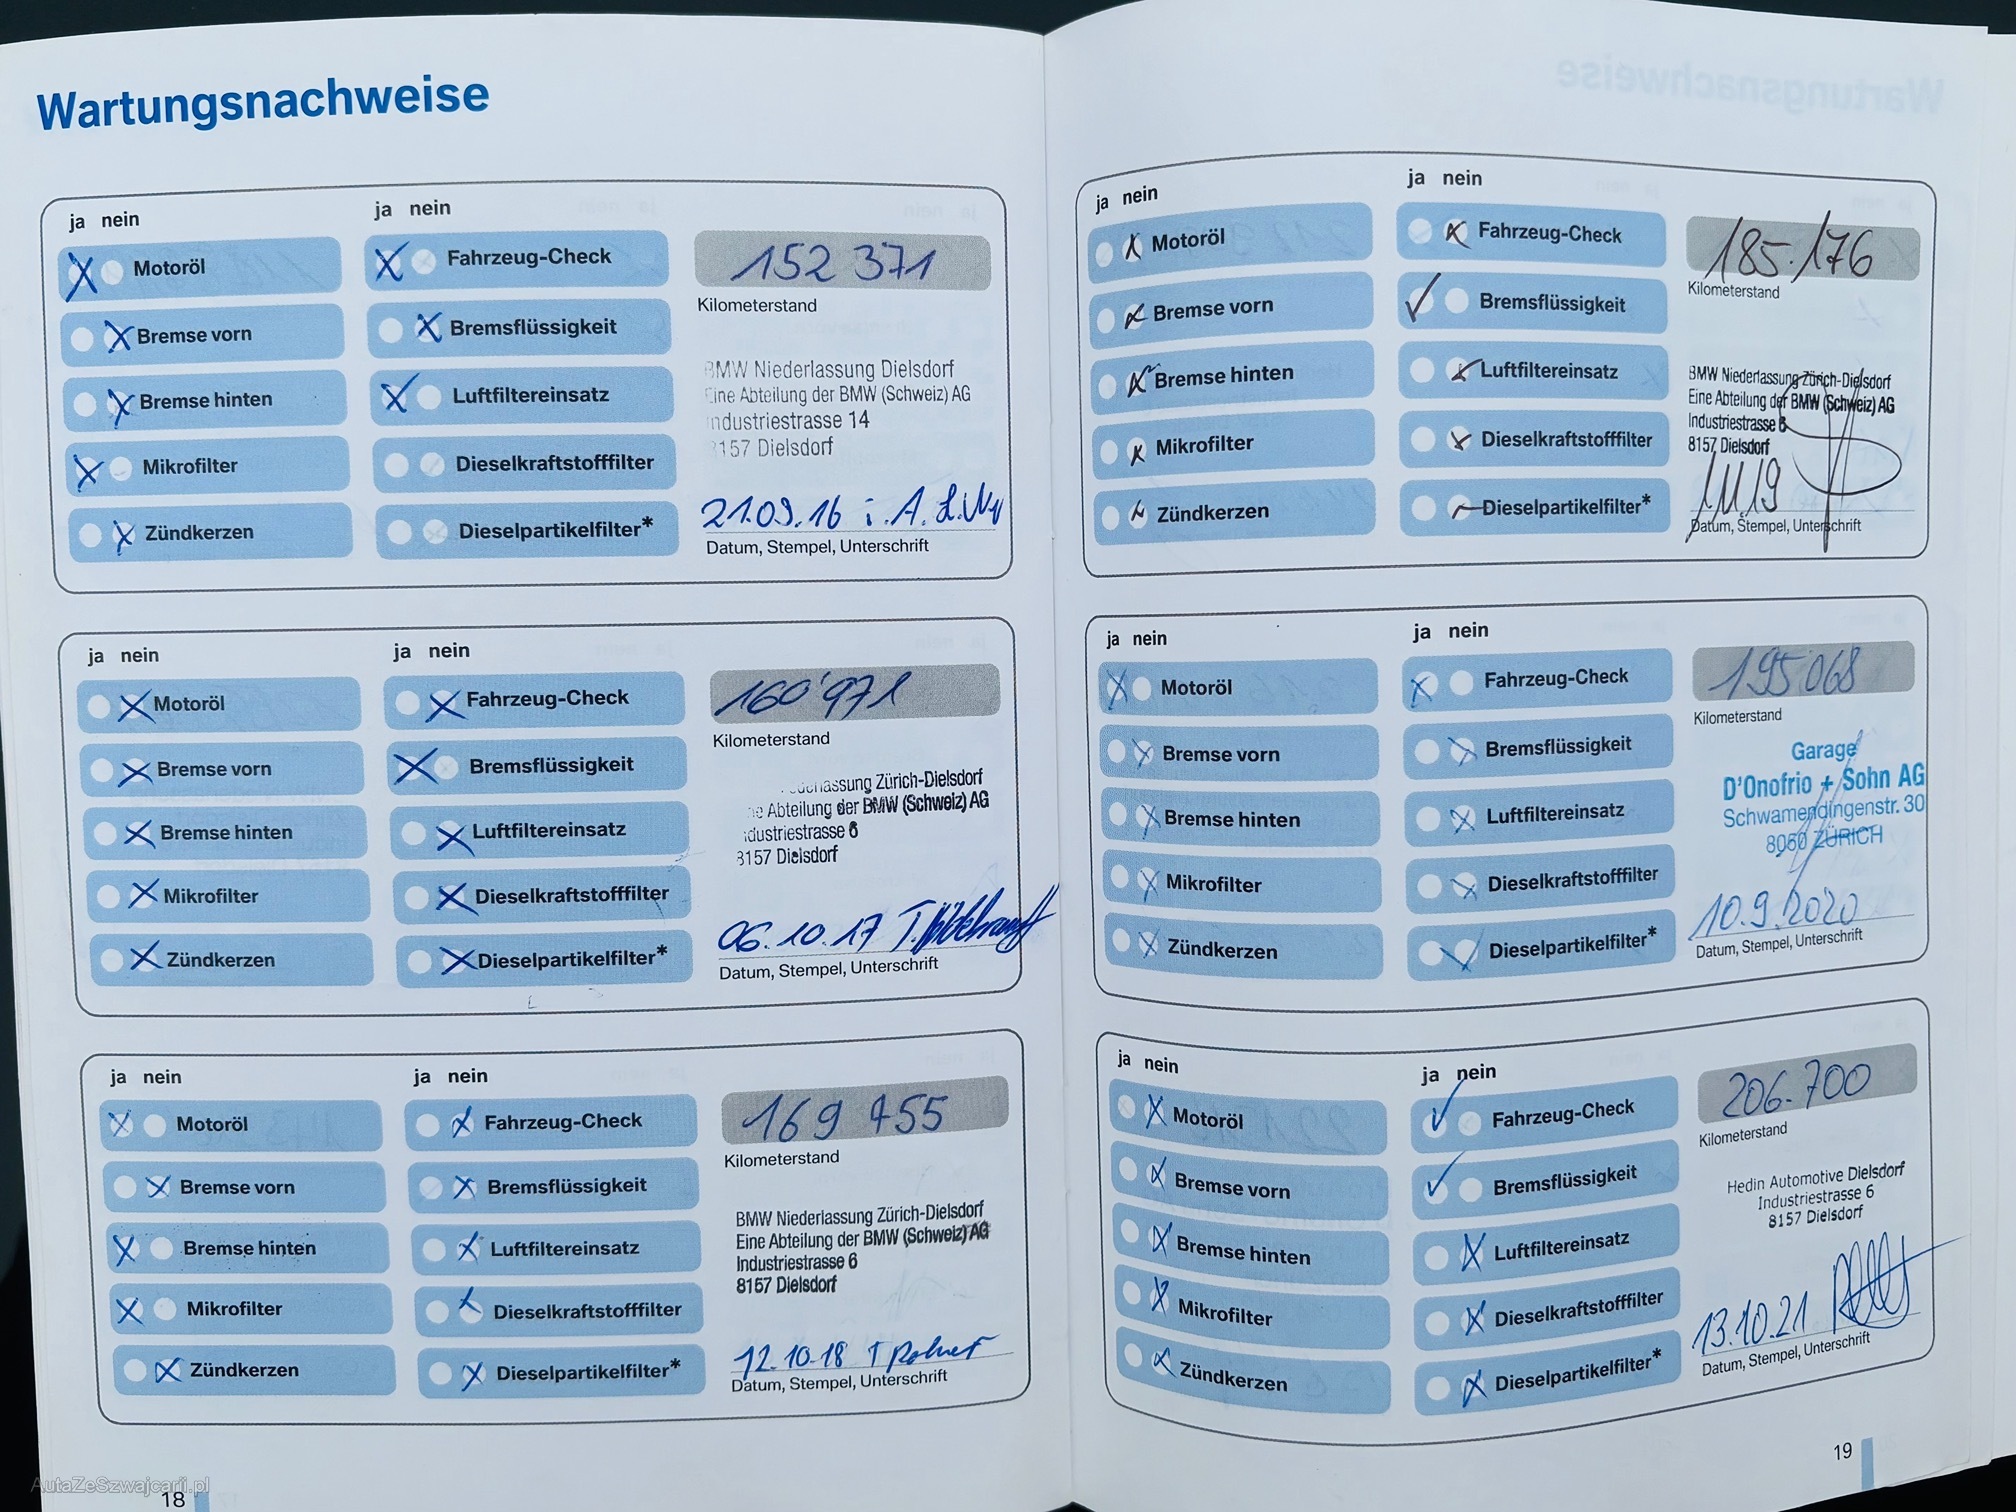 Wartungsnachweise
ja nein
ja nein
Motoröl
Fahrzeug-Check
152 371
Bremse vorn
Bremsflüssigkeit
Kilometerstand
Bremse hinten
Luftfiltereinsatz
BMW Niederlassung Dielsdorf
Eine Abteilung der BMW (Schweiz) AG
Industriestrasse 14
8157 Dielsdorf
Mikrofilter
Dieselkraftstofffilter
Zündkerzen
Dieselpartikelfilter*
21.09.16 i.A.
Datum, Stempel, Unterschrift
ja nein
ja nein
Motoröl
Fahrzeug-Check
160'971
Bremse vorn
Bremsflüssigkeit
Kilometerstand
Bremse hinten
Luftfiltereinsatz
Zürich-Dielsdorf
Abteilung der BMW (Schweiz) AG
Industriestrasse 6
8157 Dielsdorf
Mikrofilter
Dieselkraftstofffilter
Zündkerzen
Dieselpartikelfilter*
06.10.17
Datum, Stempel, Unterschrift
ja nein
ja nein
Motoröl
Fahrzeug-Check
169 755
Bremse vorn
Bremsflüssigkeit
Kilometerstand
Bremse hinten
Luftfiltereinsatz
BMW Niederlassung Zürich-Dielsdorf
Eine Abteilung der BMW (Schweiz) AG
Industriestrasse 6
8157 Dielsdorf
Mikrofilter
Dieselkraftstofffilter
Zündkerzen
Dieselpartikelfilter*
12.10.18
Datum, Stempel, Unterschrift
AutaZeSzwajcarii.pl
18
ja nein
ja nein
Motoröl
Fahrzeug-Check
185.176
Bremse vorn
Bremsflüssigkeit
Kilometerstand
Bremse hinten
Luftfiltereinsatz
BMW Niederlassung Zürich-Dielsdorf
Eine Abteilung der BMW (Schweiz) AG
Industriestrasse 6
8157 Dielsdorf
Mikrofilter
Dieselkraftstofffilter
Zündkerzen
Dieselpartikelfilter*
Datum, Stempel, Unterschrift
ja nein
ja nein
Motoröl
Fahrzeug-Check
195.068
Bremse vorn
Bremsflüssigkeit
Kilometerstand
Bremse hinten
Luftfiltereinsatz
Garage
D'Onofrio + Sohn AG
Schwamendingenstr. 30
8050 ZÜRICH
Mikrofilter
Dieselkraftstofffilter
Zündkerzen
Dieselpartikelfilter*
10.9.2020
Datum, Stempel, Unterschrift
ja nein
ja nein
Motoröl
Fahrzeug-Check
206.700
Bremse vorn
Bremsflüssigkeit
Kilometerstand
Bremse hinten
Luftfiltereinsatz
Hedin Automotive Dielsdorf
Industriestrasse 6
8157 Dielsdorf
Mikrofilter
Dieselkraftstofffilter
Zündkerzen
Dieselpartikelfilter*
13.10.21
Datum, Stempel, Unterschrift
19